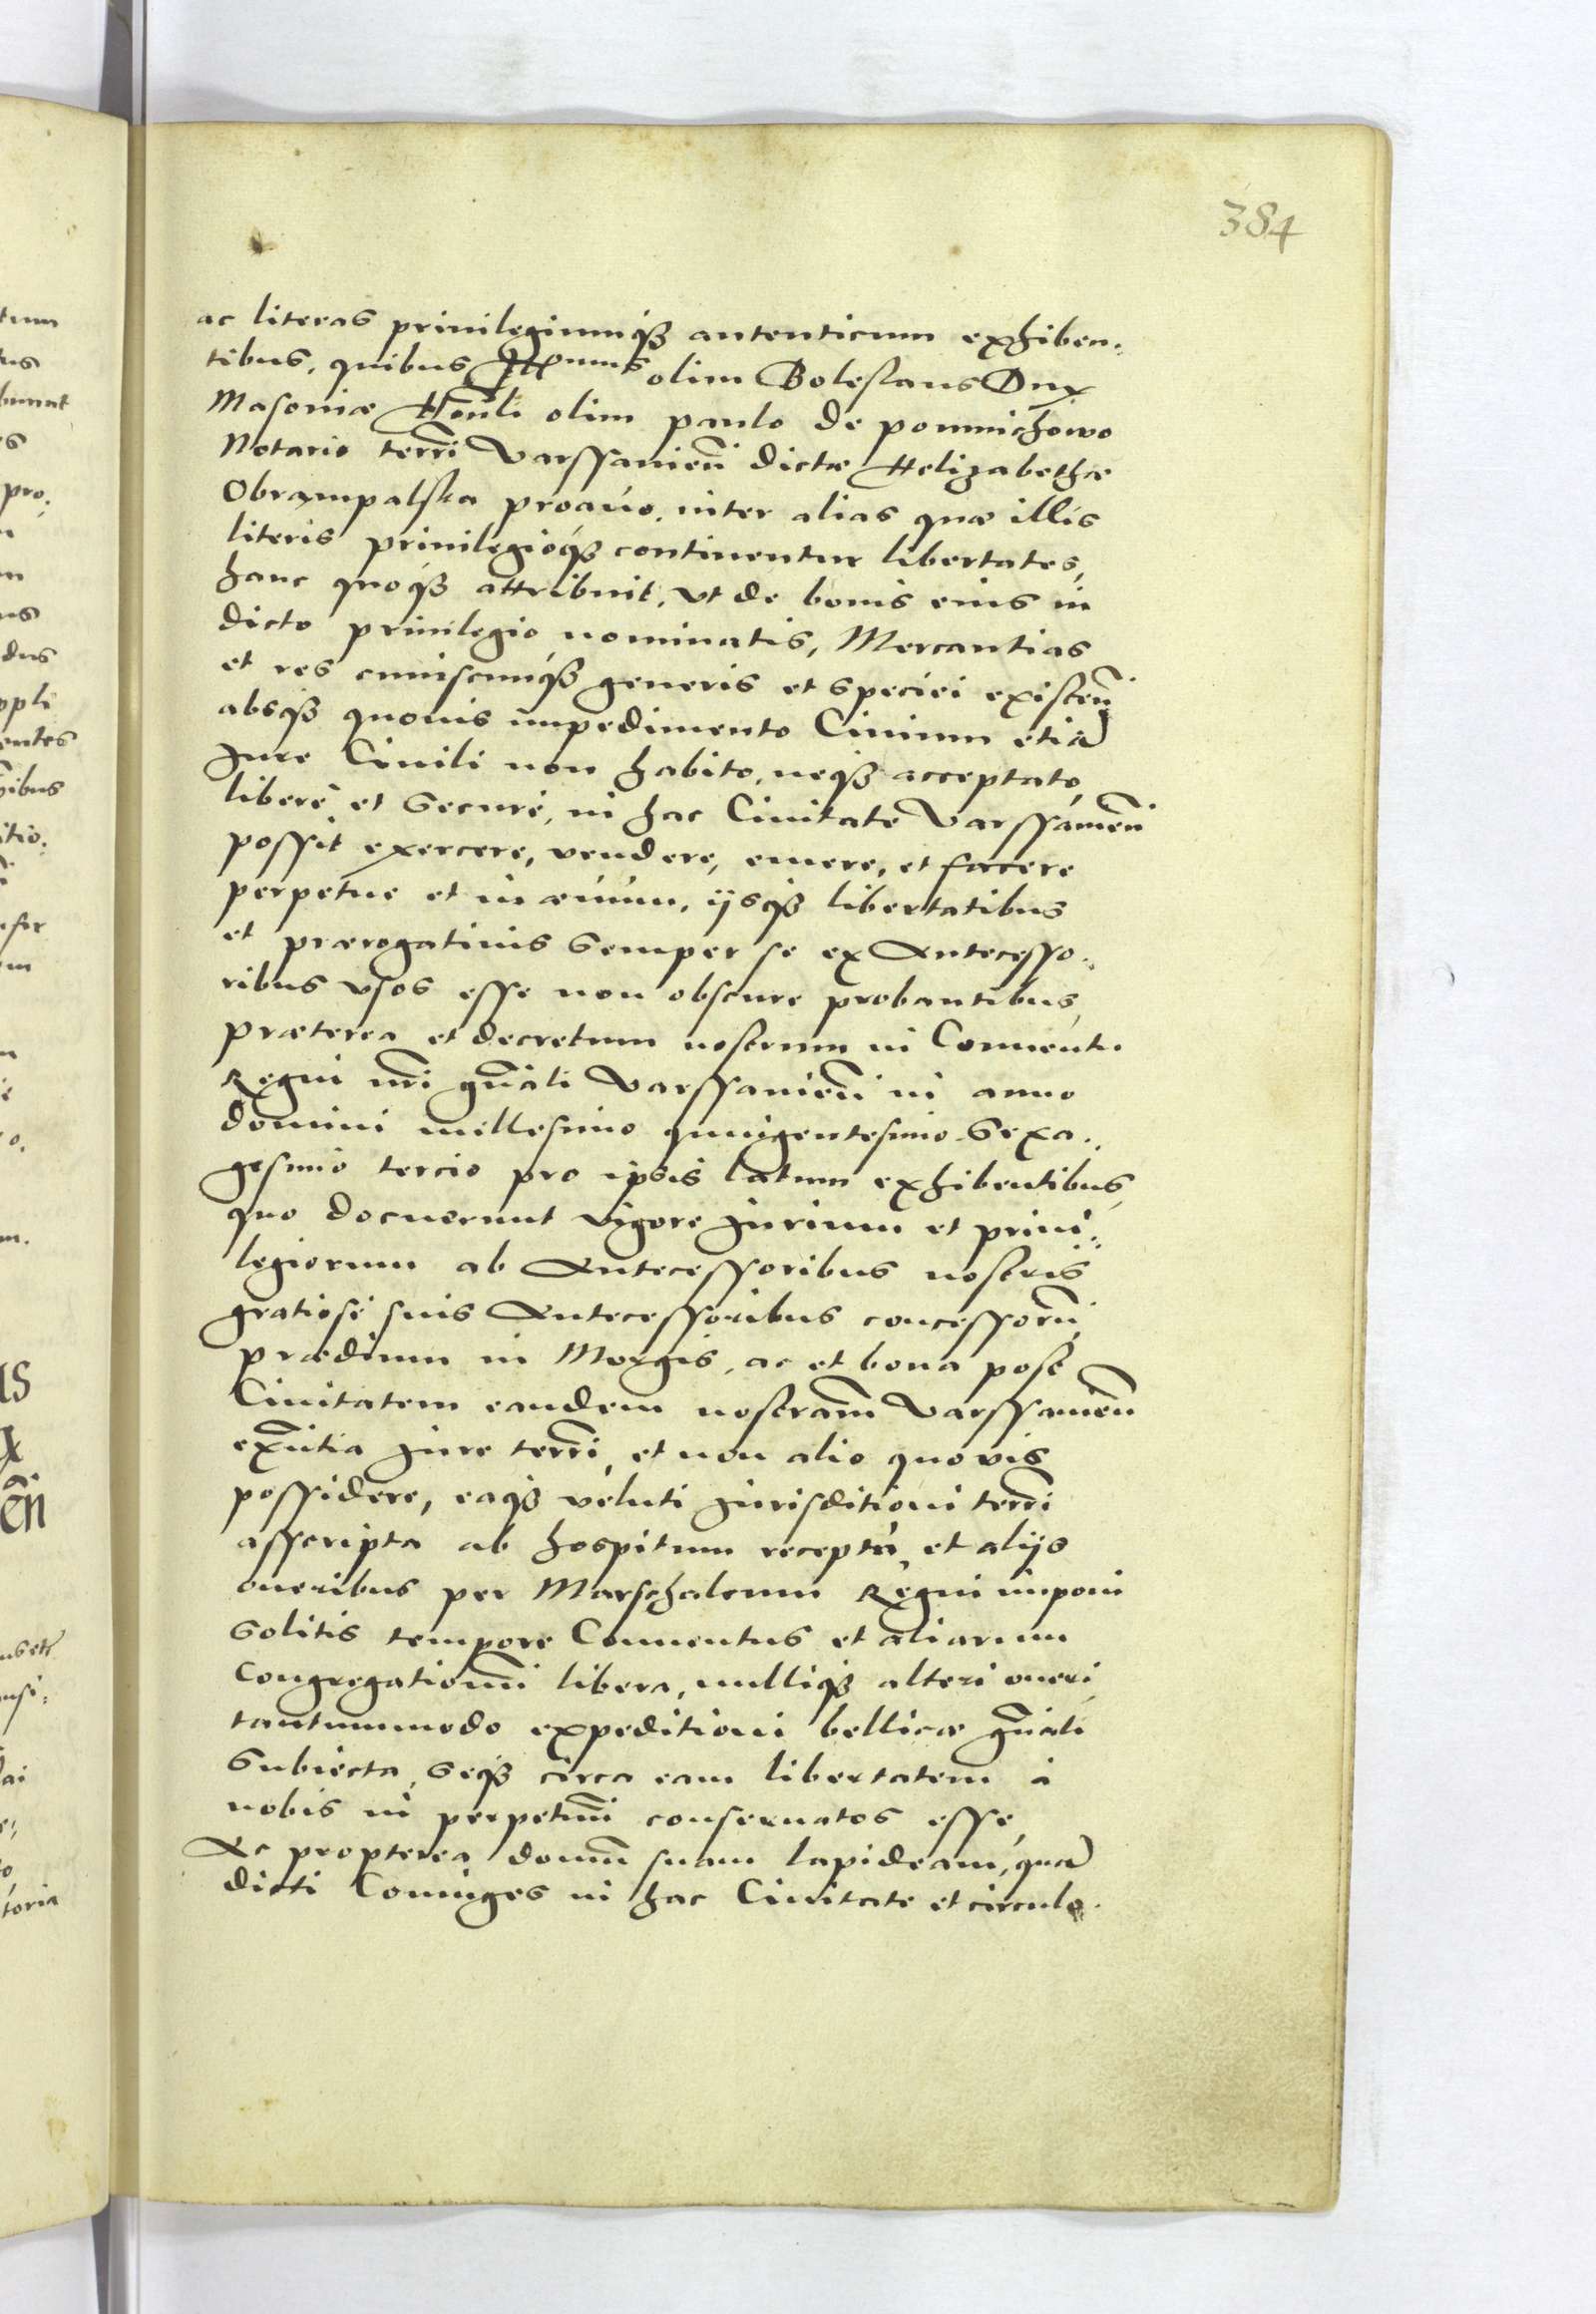 384
ac literas priuilegiumq3 autenticum exhiben„
tibus, quibus Illmus olim Boleslaus Dux
Masouiæ Honli olim paulo de pomnichowo
Notario terrī Varssauieñ dictæ Helizabethæ
Obrąmpalska proauo, inter alias quæ illis
literis priuilegioq3 continentur libertates,
hanc quoq3 attribuit, vt de bonis eius in
dicto priuilegio nominatis, Mercantias
et res cuiuscunq3 generis et speciei existeñ
absq3 quouis impedimento Ciuium etiā
Jure Ciuili non habito, neq3 acceptato,
liberè et Securè, in hac Ciuitate Varssauieñ
possit exercere, vendere, emere, et facere
perpetue et in æuum, ijsq3 libertatibus
et prærogatiuis Semper se ex Antecesso„
ribus vsos esse non obscure probantibus,
præterea et decretum nostrum in Conuentu
Regni nrī gnāli Varssauieñ in anno
domini millesimo quingentesimo Sexa„
gesimo tercio pro ipsis latum exhibentibus,
quo docuerunt vigore Jurium et priui„
legiorum ab Antecessoribus nostris
gratiosè suis Antecessoribus concessorū,
prædium in Morgis, ac et bona post
Ciuitatem eandem nostram Varssauieñ
exñtia Jure terrī, et non alio quo vis
possidere, eaq3 veluti Jurisditioni terrī
asscripta ab hospitum receptu, et alijs
oneribus per Marschalcum Regni imponi
Solitis tempore Conuentus et aliarum
Congregationū libera, nulliq3 alteri oneri,
tantummodo expeditioni bellicæ gnāli
Subiecta, Seq3 circa eam libertatem à
nobis in perpetuū conseruatos esse,
Ac propterea domū suam lapideam, quā
dicti Coniuges in hac Ciuitate et circulo